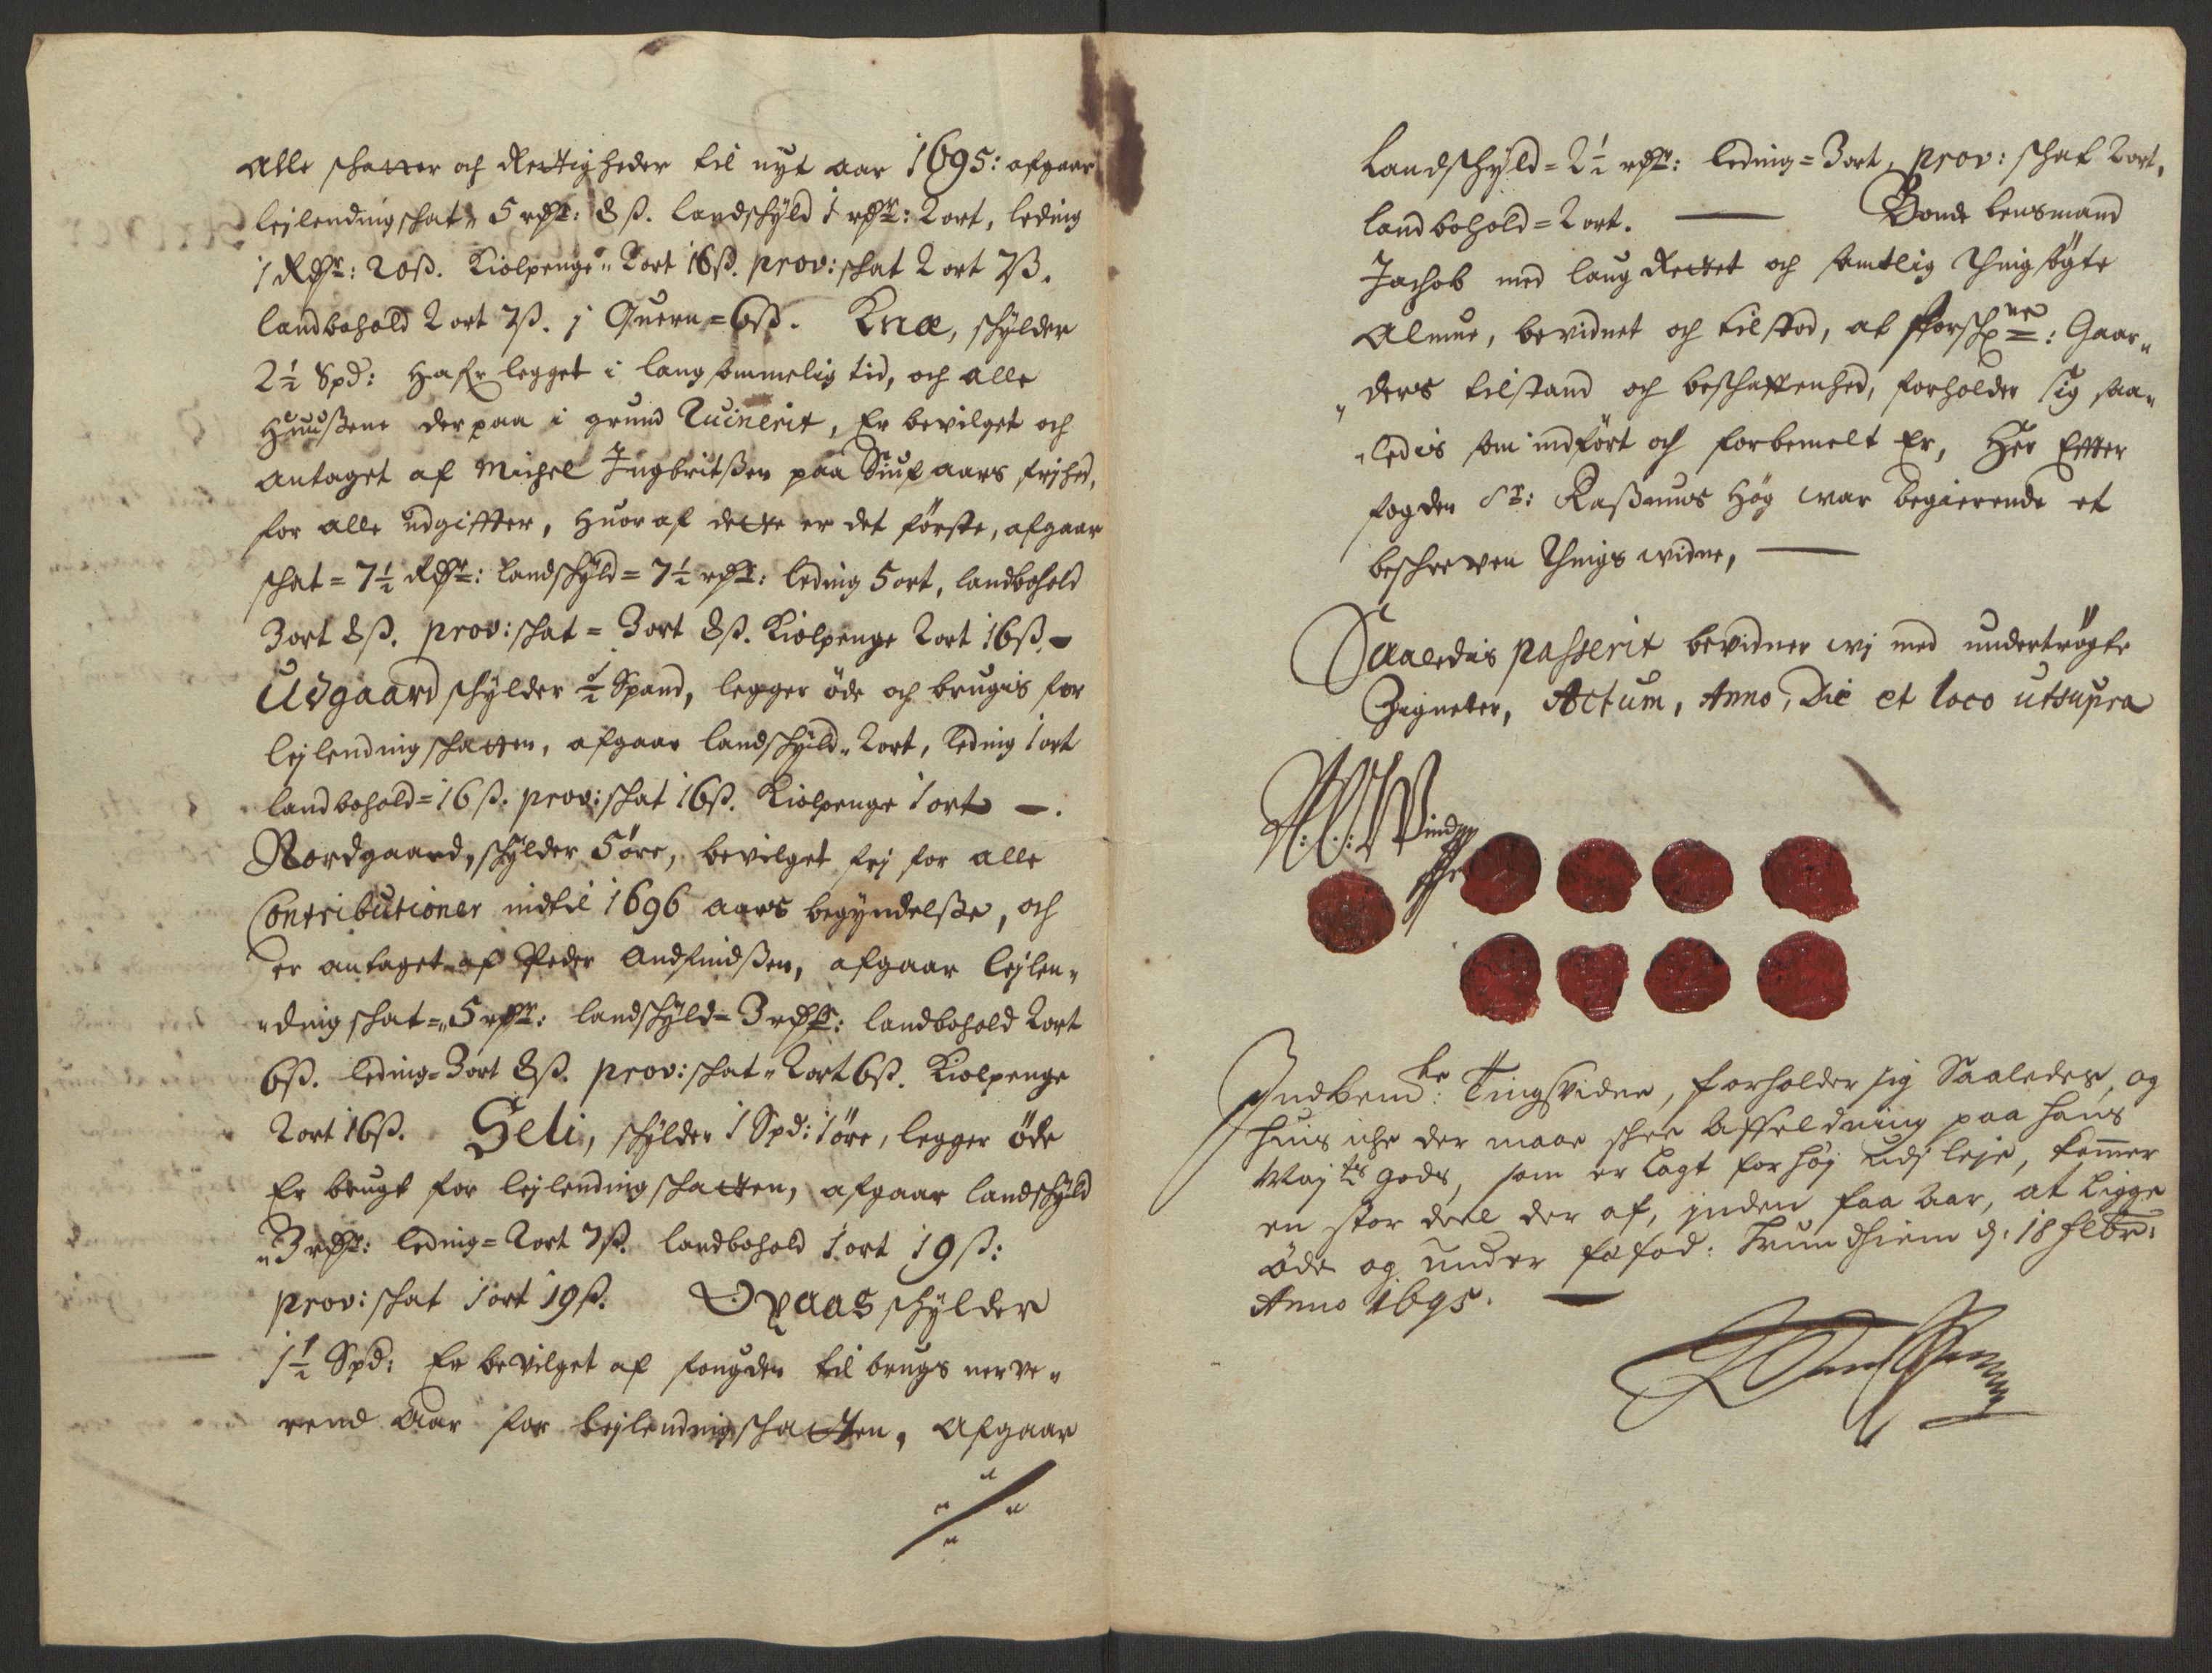 Alle schatter och Rettigheder til nyt aar 1695: afgaar
leilending schat„ 5 rdr: 8 ß. landschyld 1 rdr: 2 ort, leding
1 Rdr: 20 ß. Kiolpenge„ 2 ort 16 ß. prov: schat 2 ort 7 ß.
landbohold 2 ort 7 ß. j Quern = 6 ß. Knæ, schylder
2½ Spd: Hafr legget i langsommelig tid, och alle
Huußene der paa i grund Ruinerit, Er bevilget och
antaget af Michel Ingbritßen paa Siuf aars frjhed,
for alle udgiffter, huor af dette er det förste, afgaar
schat = 7½ Rdr: landschyld = 7½ rdr: leding 5 ort, landbohold
3 ort 8 ß. prov: schat = 3 ort 8 ß. Kiolpenge 2 ort 16 ß. –
Udgaard schylder ½ Spand, legger öde och brugis for
lejlending schatten, afgaar landschyld„ 2 ort, leding 1 ort
landbohold = 16 ß. prov: schat 16 ß. Kiolpenge 1 ort –.
Nordgaard, schylder 5 öre, bevilget frj for alle
Contributioner indtil 1696 aars begyndelße, och
er antaget af Peder Andfindßen, afgaar lejlen„
„ding schat =„ 5 rdr: landschyld = 3 rdr: landbohold 2 ort
6 ß. leding = 3 ort 8 ß. prov: schat„ 2 ort 6 ß. Kiolpenge
2 ort 16 ß. Seli, schylder 1 Spd: 1 öre, legger öde
Er brugt for lejlending schatten, afgaar landschyld
„3 rdr: leding = 2 ort 7 ß. landbohold 1 ort 19 ß:
prov: schat 1 ort 19 ß. Opaas schylder
1½ Spd: Er bevilget af fougden til brugs nerve„
rend Aar for lejlending schatten, Afgaar
Landschyld = 2½ rdr: leding = 3 ort, prov: schat 2 ort,
landbohold = 2 ort. — Bonde lensmand
Jachob med laug Rettet och samtlig Thingsögte
Almue, bevidnet och tilstod, at fforschrne: Gaar„
„ders tilstand och beschaffenhed, forholder sig saa„
„ledis som indfört och forbemelt Er, Her Effter
fogden Sr: Raßmus Hög war begierende et
beschreven Things widne, —
Saaledis passerit bevidner wj med undertrögte
Zigneter, Actum, Anno, Die et loco utsupra
Indbemte: Tingsvidne, forholder sig Saaledes, og
huis iche der maae schee Affeldning paa hans
Maj ts gods, som er lagt for höj udj leje, kommer
en stor deel der af, inden faa Aar, at ligge
öde og under fæfod: Trundhiem d. 18 Febr:
Anno 1695. —